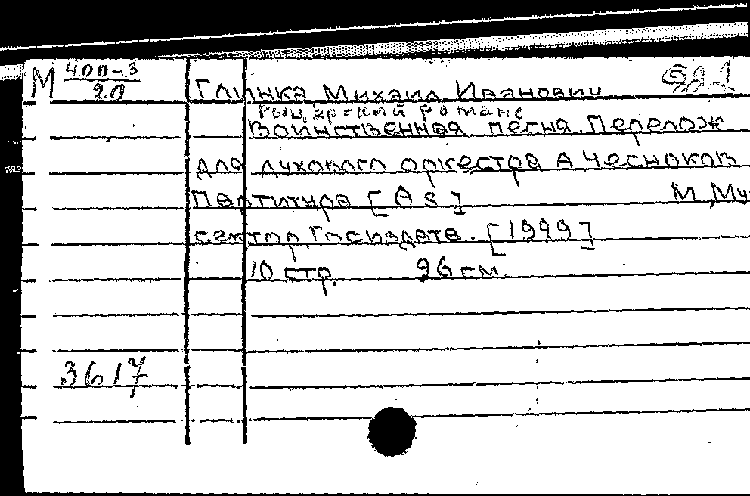 М 400-3
20
Глинка Михаил Иванович
Рыцарский романс
Воинственная песня. Перелож
для духового оркестра А Чесноков
Партитура [As] М, Му
сектор Госиздата. [1999]
10 стр. 26 см.
3617